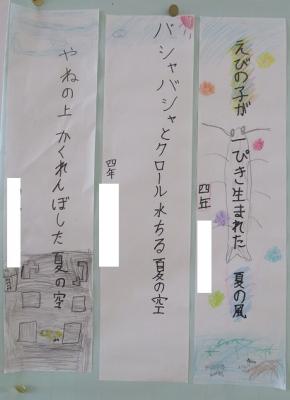 えびの子が一ぴき生まれた 夏の風
四年
バシャバシャとクロール水ちる夏の空
四年
やねの上 かくれんぼした 夏の空